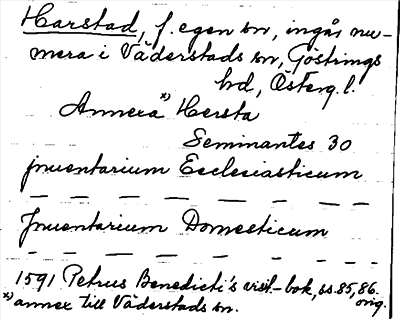 Harstad, f. egen sn, ingår nu-
mera i Väderstads sn, Göstrings
hd, Österg. l.
Annexa x) Hersta
Seminantes 30
Inventarium Ecclesiasticum
— — — — — — — —
Inventarium Domesticum
- — — — — — — —
1591 Petrus Benedicti's visit.-bok, ss. 85, 86.
orig.
x) annex till Väderstads sn.